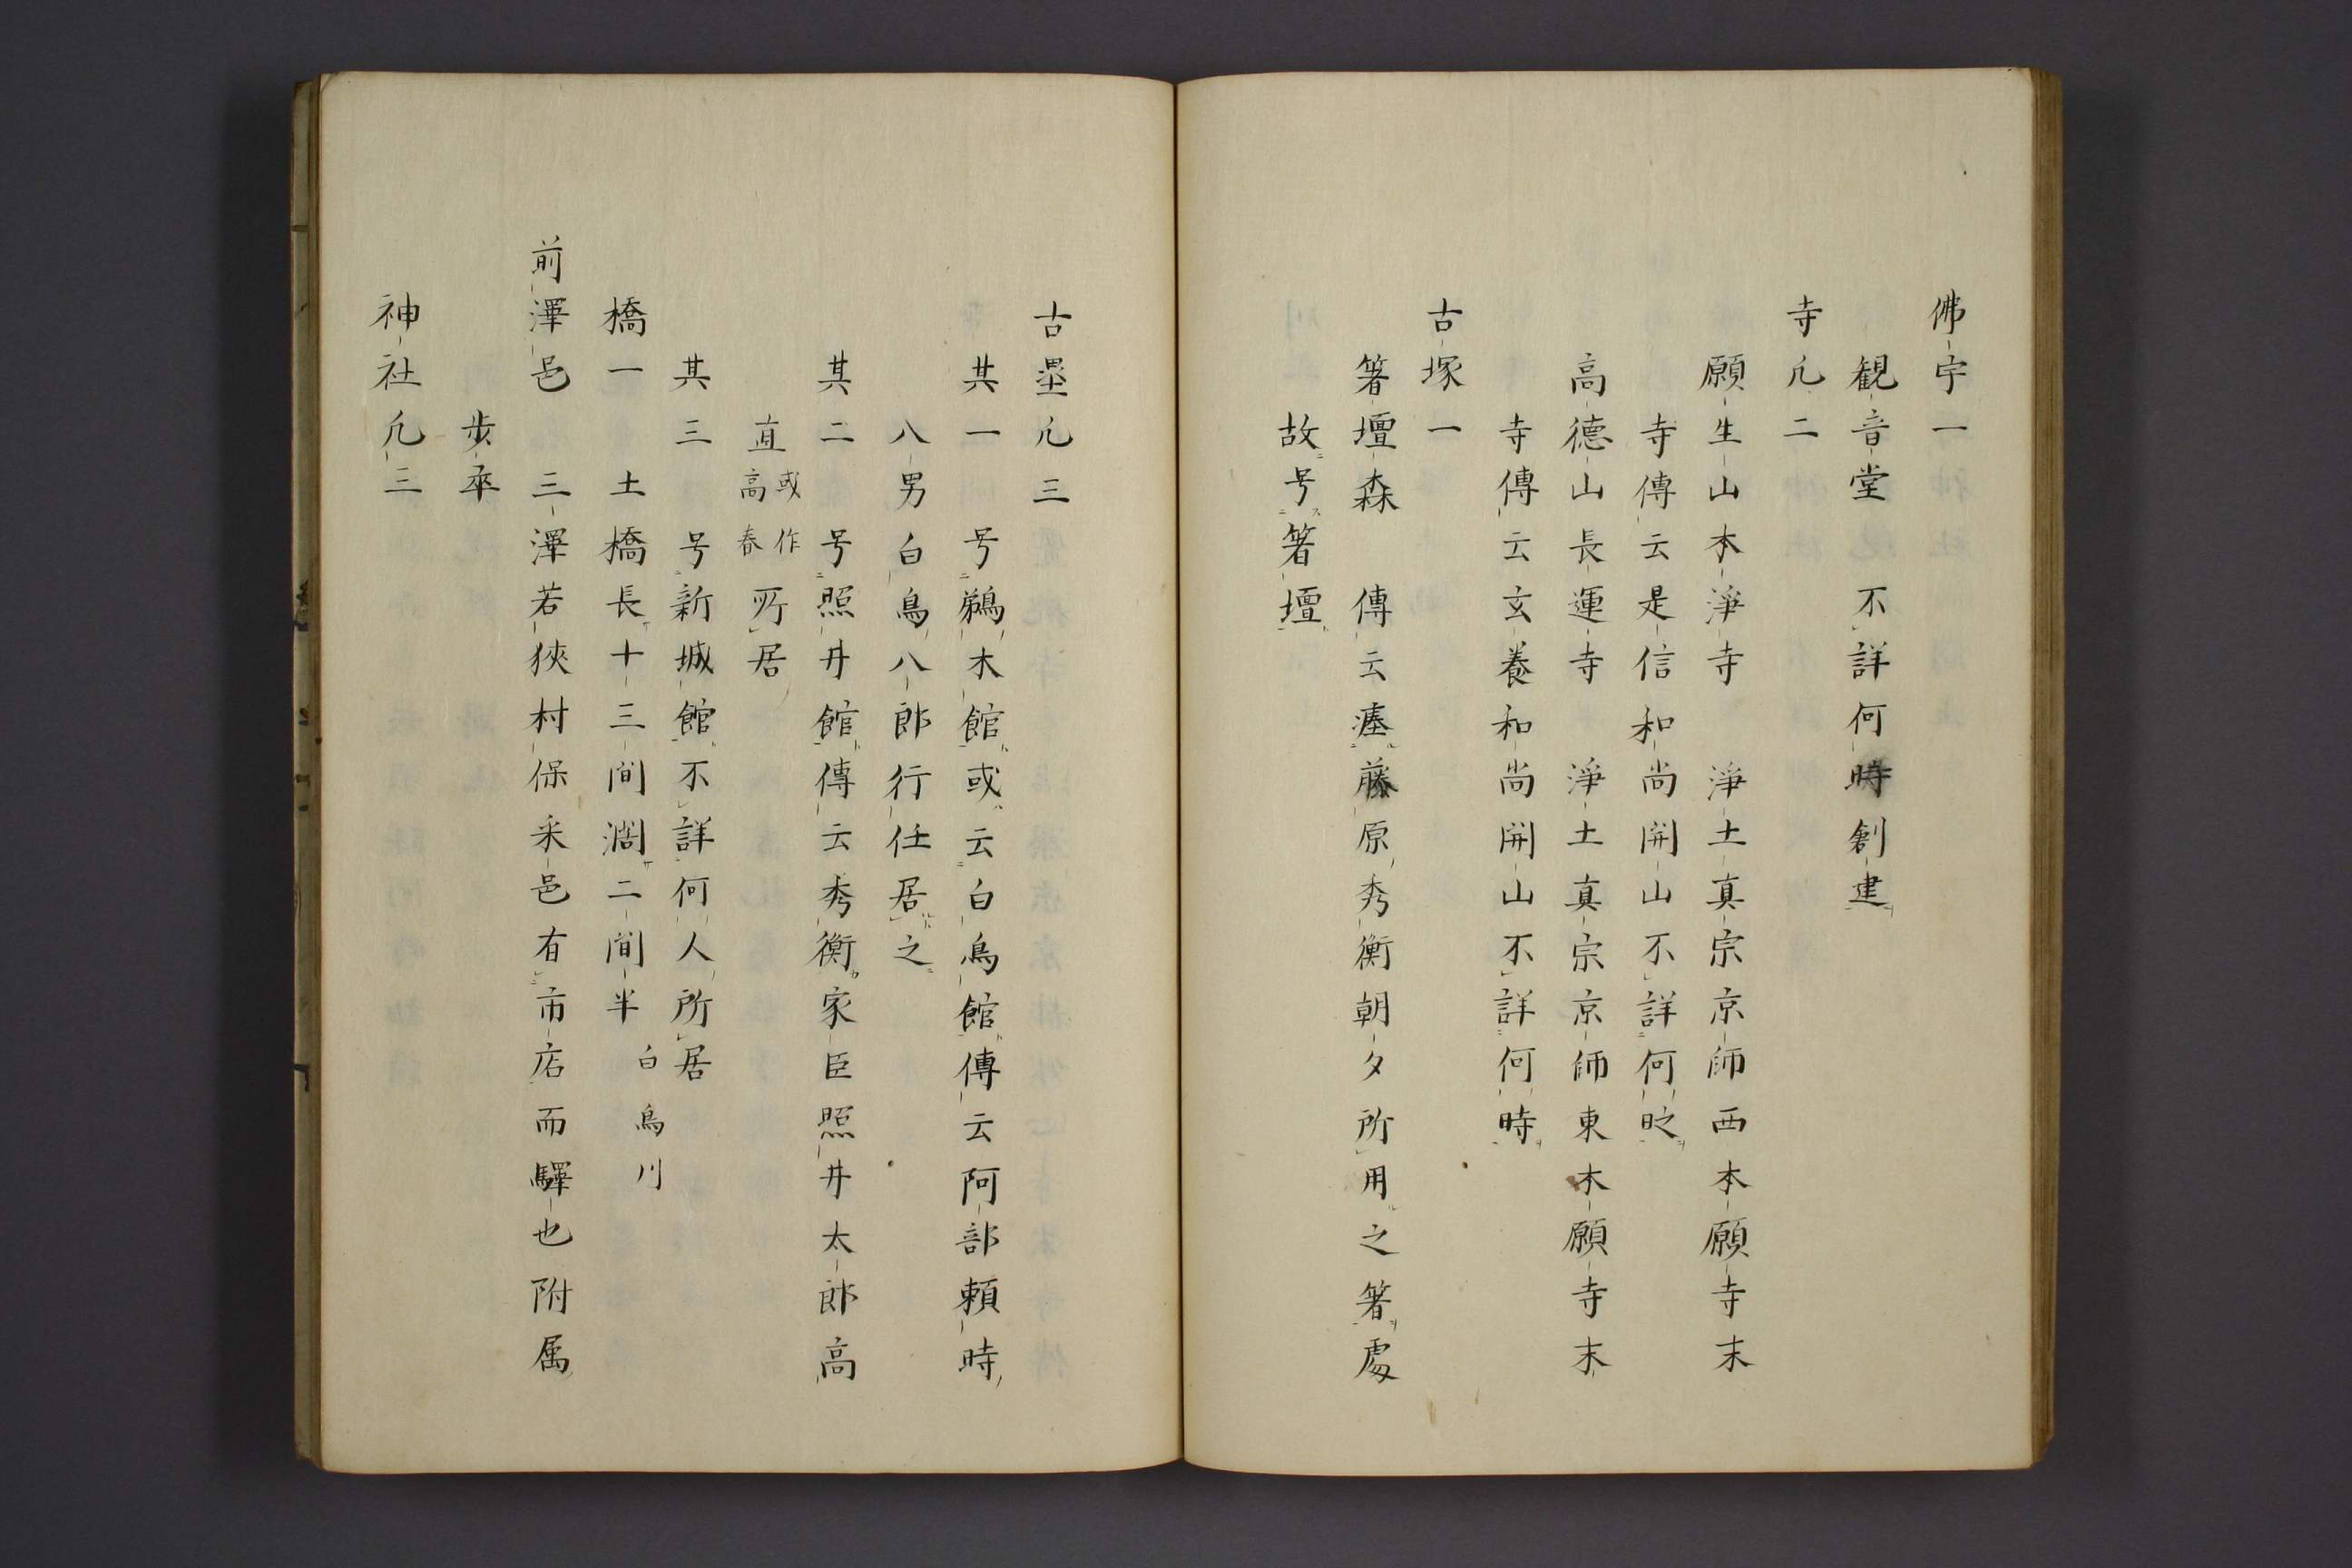 佛宇一
観音堂　不詳何時創建
寺凢二
願生山本淨寺　淨土真宗京師西本願寺末
寺傳云是信和尚開山不詳何時
高德山長運寺　淨土真宗京師東木願寺末
寺傳云玄養和尚開山不詳何時
古塚一
箸壇森　傳云瘞藤原秀衡朝夕所用之箸處
故号箸壇
古壘凢三
其一　号鵜木館或云白鳥館傳云阿部頼時
八男白鳥八郎行任居之
其二　号照井館傳云秀衡家臣照井太郎高
直或作高春所居
其三　号新城館不詳何人所居
橋一　土橋長十三間濶二間半白鳥川
前澤邑　三澤若狹村保采邑有市店而驛也附属
歩卒
神社凢三